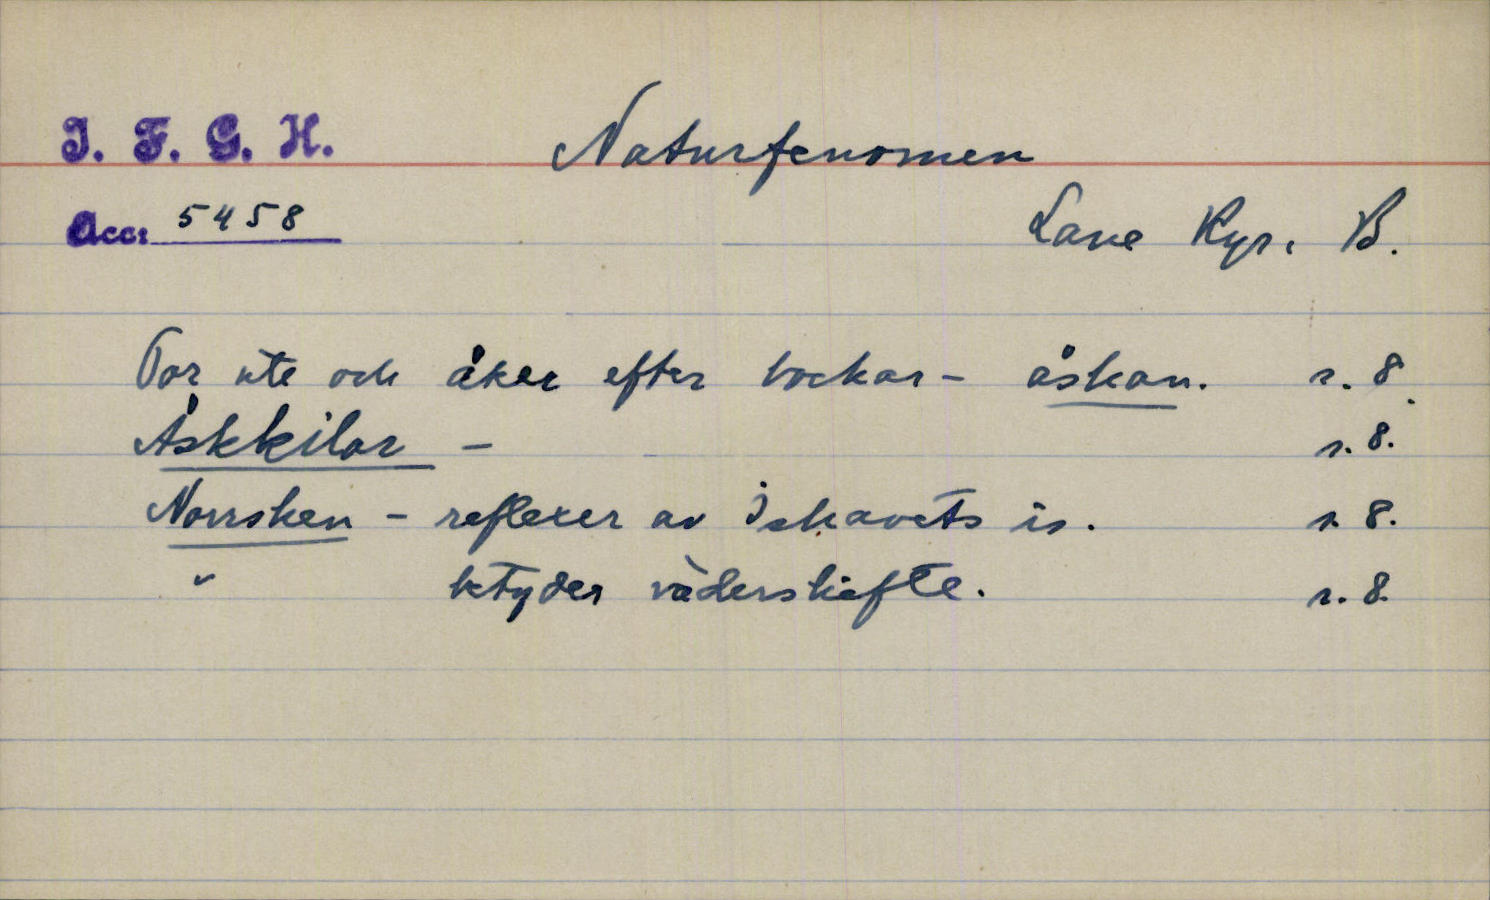 I. F. G. H.
Naturfenomen
Acc: 5458
Lane Ryr. B.
Tor ute och åker efter bockar – åskan. s. 8.
Åskkilar – s. 8.
Norrsken – reflexer av Ishavets is. s. 8.
" betyder väderskifte. s. 8.